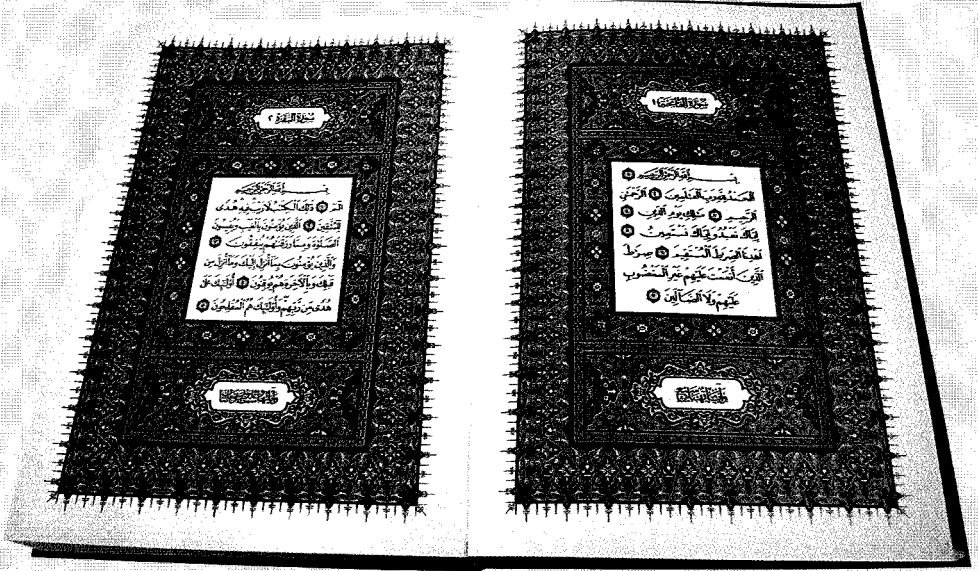 سُورَةُ الفَاتِحَةِ ١
بِسْمِ ٱللَّهِ ٱلرَّحْمَٰنِ ٱلرَّحِيمِ ١
ٱلْحَمْدُ لِلَّهِ رَبِّ ٱلْعَٰلَمِينَ ٢ ٱلرَّحْمَٰنِ
ٱلرَّحِيمِ ٣ مَٰلِكِ يَوْمِ ٱلدِّينِ ٤
إِيَّاكَ نَعْبُدُ وَإِيَّاكَ نَسْتَعِينُ ٥
ٱهْدِنَا ٱلصِّرَٰطَ ٱلْمُسْتَقِيمَ ٦ صِرَٰطَ
ٱلَّذِينَ أَنْعَمْتَ عَلَيْهِمْ غَيْرِ ٱلْمَغْضُوبِ
عَلَيْهِمْ وَلَا ٱلضَّآلِّينَ ٧
سُورَةُ البَقَرَةِ ٢
بِسْمِ ٱللَّهِ ٱلرَّحْمَٰنِ ٱلرَّحِيمِ
الٓمٓ ١ ذَٰلِكَ ٱلْكِتَٰبُ لَا رَيْبَ فِيهِ هُدًى
لِّلْمُتَّقِينَ ٢ ٱلَّذِينَ يُؤْمِنُونَ بِٱلْغَيْبِ وَيُقِيمُونَ
ٱلصَّلَوٰةَ وَمِمَّا رَزَقْنَٰهُمْ يُنفِقُونَ ٣
وَٱلَّذِينَ يُؤْمِنُونَ بِمَآ أُنزِلَ إِلَيْكَ وَمَآ أُنزِلَ مِن
قَبْلِكَ وَبِٱلْءَاخِرَةِ هُمْ يُوقِنُونَ ٤ أُو۟لَٰٓئِكَ عَلَىٰ
هُدًى مِّن رَّبِّهِمْ وَأُو۟لَٰٓئِكَ هُمُ ٱلْمُفْلِحُونَ ٥